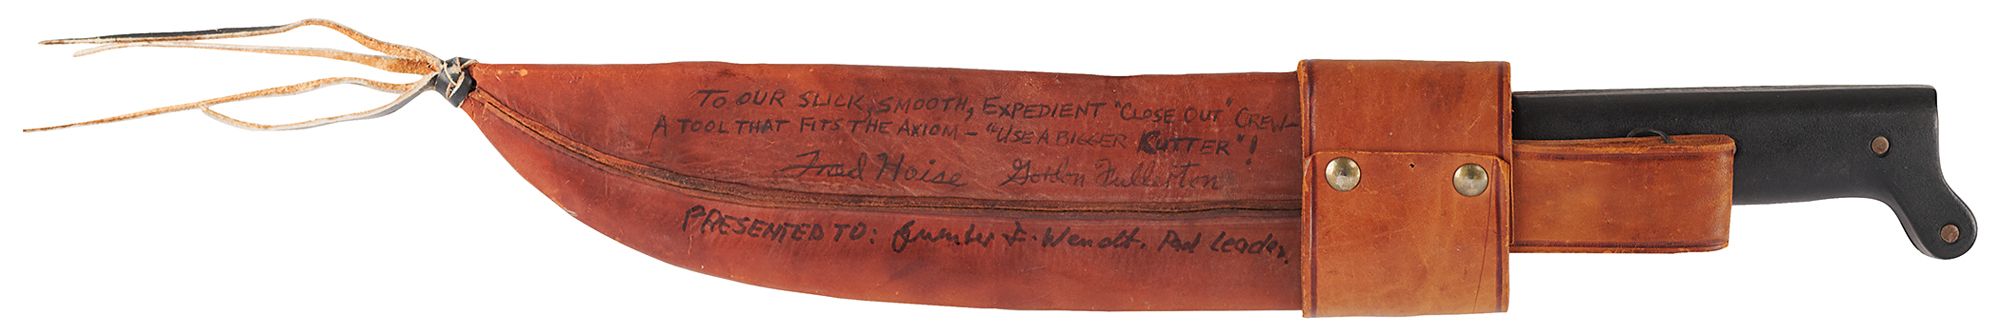 TO OUR SLICK, SMOOTH, EXPEDIENT "CLOSE OUT" CREW–
A TOOL THAT FITS THE AXIOM – "USE A BIGGER CUTTER"!
Fred Haise Gordon Fullerton
PRESENTED TO: Guenter F. Wendt. Pad Leader.